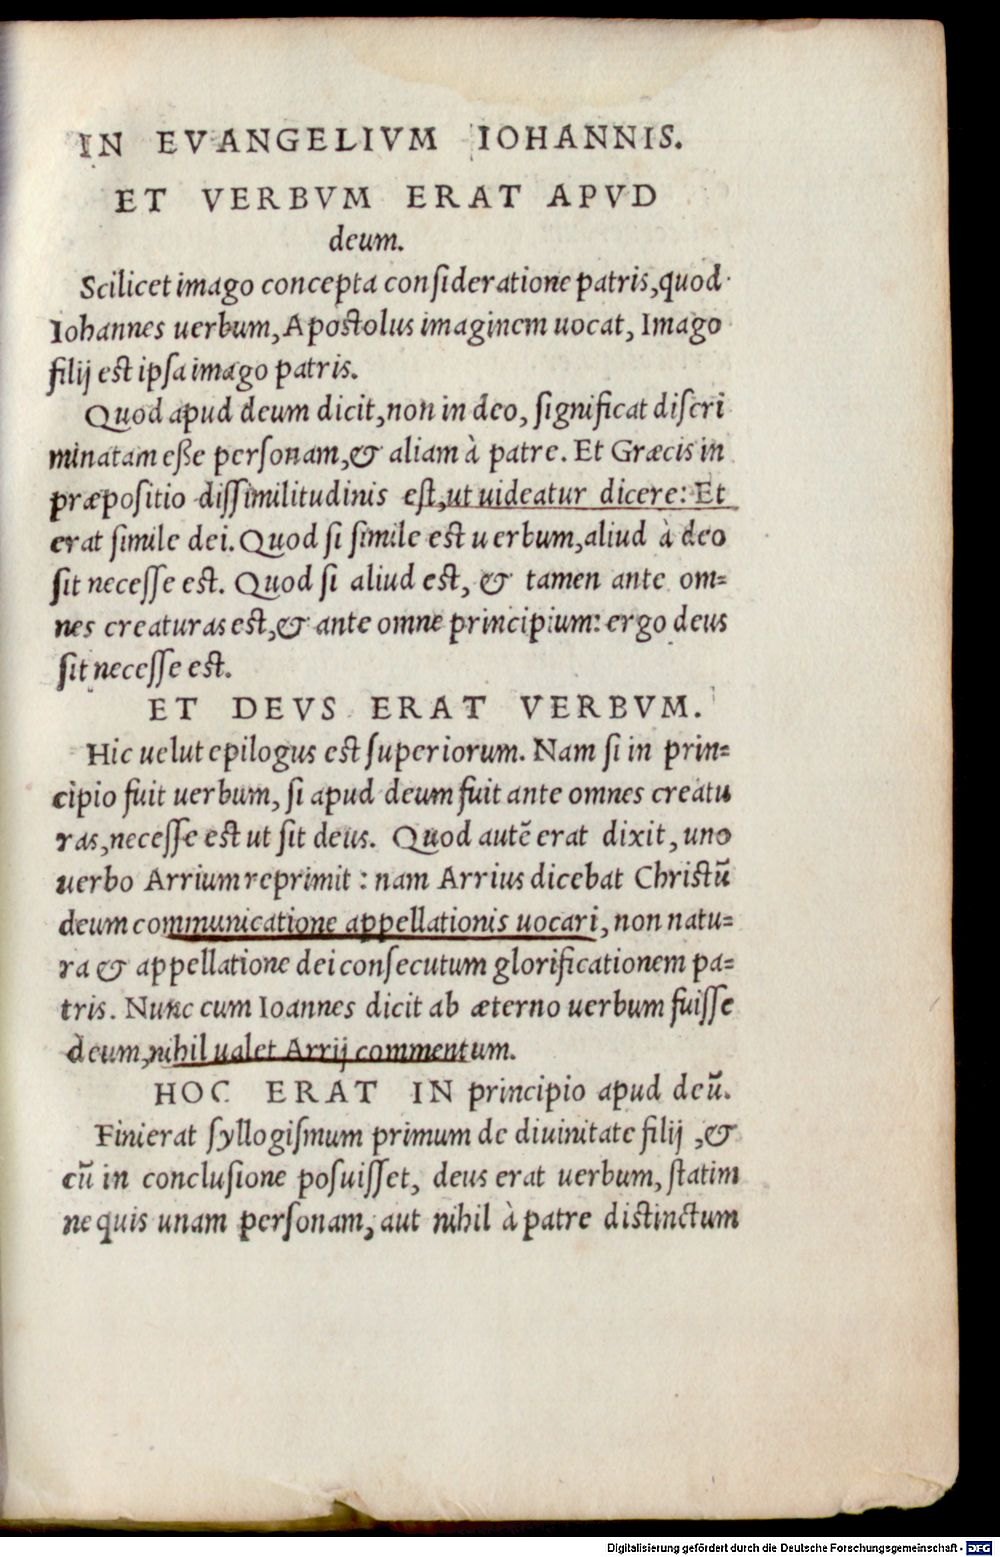 IN EVANGELIVM IOHANNIS.
ET VERBVM ERAT APVD
deum.
Scilicet imago concepta consideratione patris, quod
Iohannes uerbum, Apostolus imaginem uocat, Imago
filij est ipsa imago patris.
Quod apud deum dicit, non in deo, significat discri
minatam eße personam, & aliam à patre. Et Græcis in
præpositio dissimilitudinis est, ut uideatur dicere: Et
erat simile dei. Quod si simile est uerbum, aliud à deo
sit necesse est. Quod si aliud est, & tamen ante om=
nes creaturas est, & ante omne principium: ergo deus
sit necesse est.
ET DEVS ERAT VERBVM.
Hic uelut epilogus est superiorum. Nam si in prin=
cipio fuit uerbum, si apud deum fuit ante omnes creatu
ras, necesse est ut sit deus. Quod autẽ erat dixit, uno
uerbo Arrium reprimit: nam Arrius dicebat Christũ
deum communicatione appellationis uocari, non natu=
ra & appellatione dei consecutum glorificationem pa=
tris. Nunc cum Ioannes dicit ab æterno uerbum fuisse
deum, nihil ualet Arrij commentum.
HOC ERAT IN principio apud deũ.
Finierat syllogismum primum de diuinitate filij, &
cũ in conclusione posuisset, deus erat uerbum, statim
ne quis unam personam, aut nihil à patre distinctum
Digitalisierung gefördert durch die Deutsche Forschungsgemeinschaft - DFG